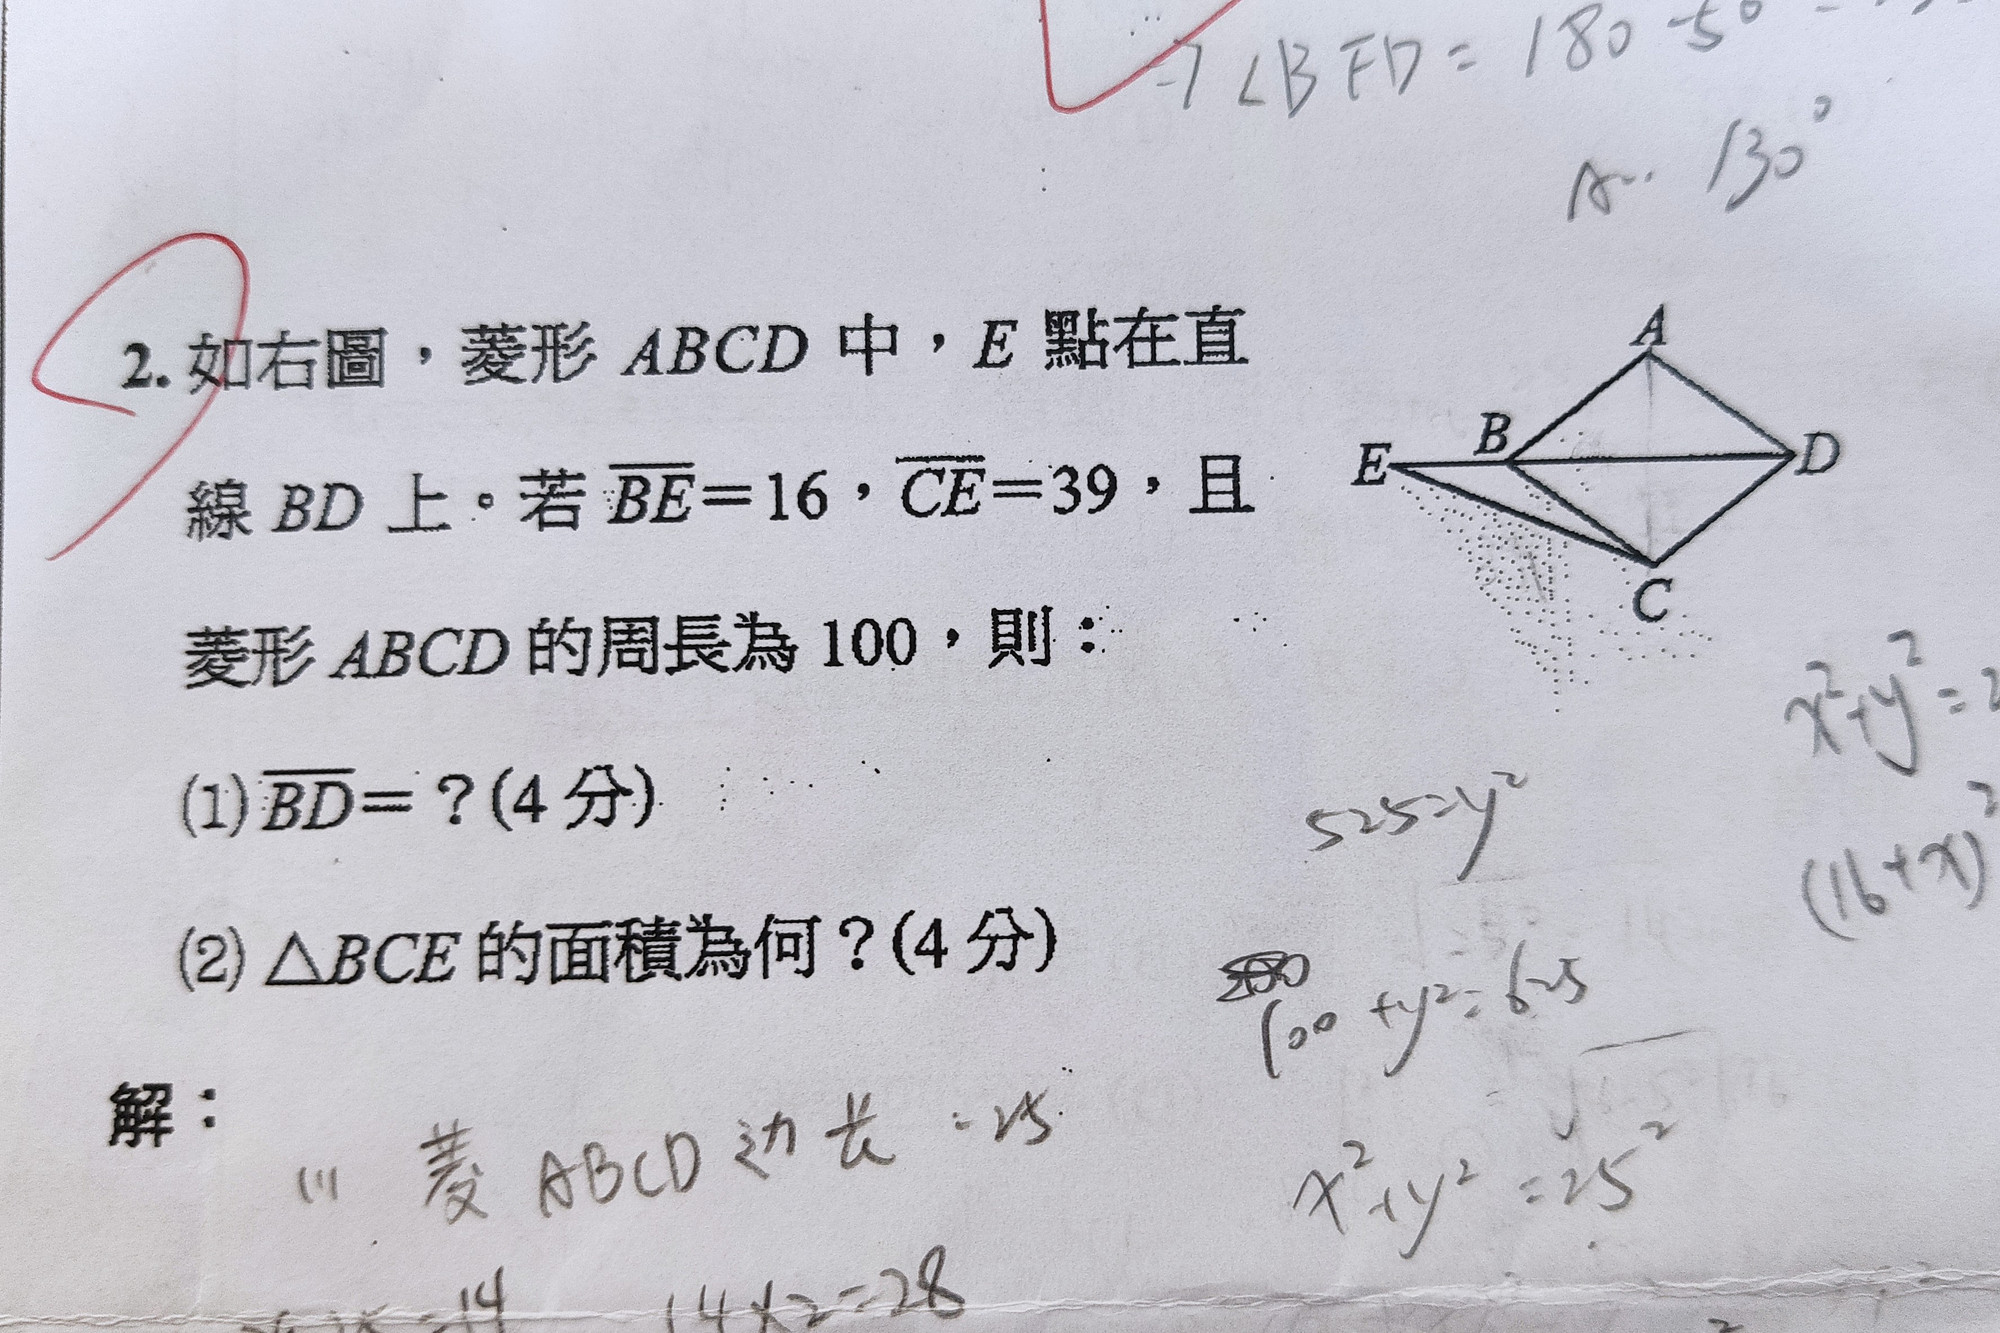 ∠BFD = 180 - 50
A: 130°
2. 如右圖，菱形 ABCD 中，E 點在直
線 BD 上。若 BE=16，CE=39，且
菱形 ABCD 的周長為 100，則：
(1) BD=？(4 分)
(2) △BCE 的面積為何？(4 分)
A
B
E
D
C
x²+y²=
(16+x)²
525=y²
100+y²=625
x²+y²=25²
解：
(1) 菱 ABCD 边长=25
=14 14×2=28